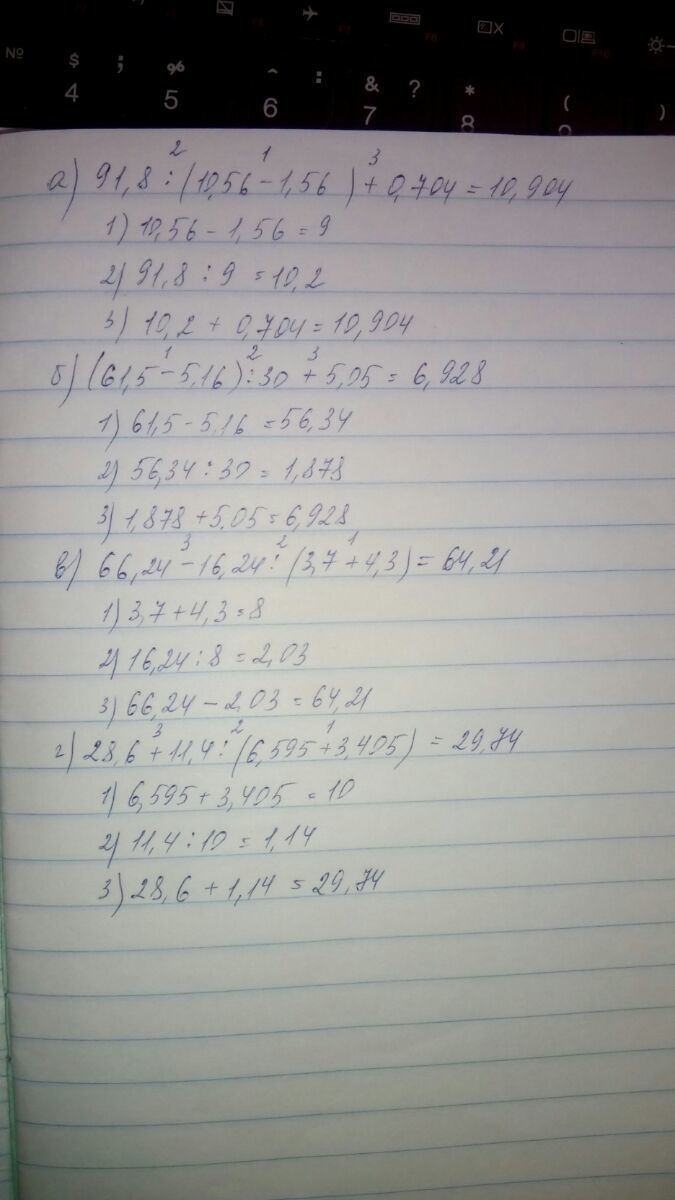 № $ 4 ; % 5 ^ 6 : & 7 ? * 8 ( )
а) 91,8 : (10,56 - 1,56) + 0,704 = 10,904
1) 10,56 - 1,56 = 9
2) 91,8 : 9 = 10,2
3) 10,2 + 0,704 = 10,904
б) (61,5 - 5,16) : 30 + 5,05 = 6,928
1) 61,5 - 5,16 = 56,34
2) 56,34 : 30 = 1,878
3) 1,878 + 5,05 = 6,928
в) 66,24 - 16,24 : (3,7 + 4,3) = 64,21
1) 3,7 + 4,3 = 8
2) 16,24 : 8 = 2,03
3) 66,24 - 2,03 = 64,21
г) 28,6 + 11,4 : (6,595 + 3,405) = 29,74
1) 6,595 + 3,405 = 10
2) 11,4 : 10 = 1,14
3) 28,6 + 1,14 = 29,74